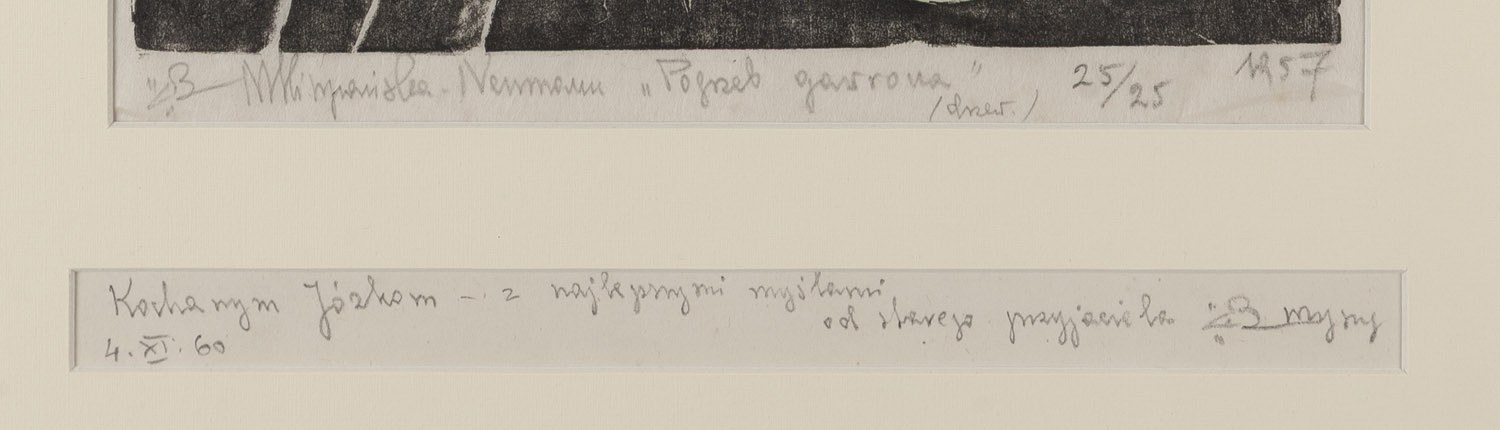 Neumann „Pogrzeb gawrona” 25/25 1957
/drzew./
Kochanym Józkom – z najlepszymi myślami
od starego przyjaciela
4.XI.60